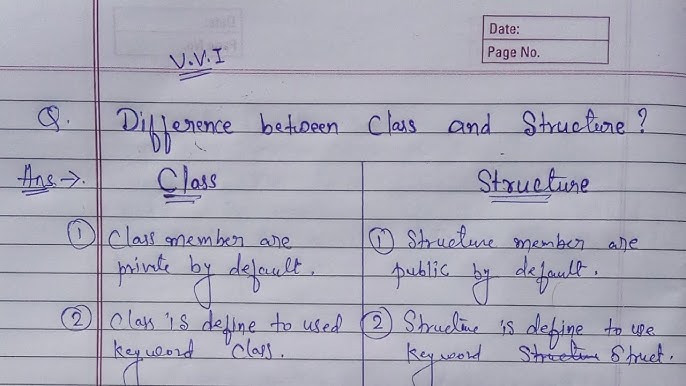 Date:
Page No.
V.V.I
Q. Difference between Class and Structure?
Ans → . Class Structure
① Class member are ① Structure member are
private by default. public by default.
② Class is define to used ② Structure is define to use
keyword Class. keyword Structure Struct.